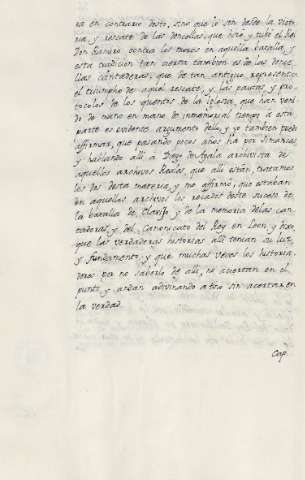 ra en contrario desto, sino que lo son desde la victo
ria, y rescate de las doncellas, que hizo, y tubo el Rei
Don Ramiro contra los moros en aquella batalla, y
esta tradicion tan cierta tambien es de las donce-
llas cantaderas, que de tan antiguo representan
el triumpho de aquel rescate, y las pautas, y pro-
tocolos de los quentos de la Iglesia, que han veni-
do de mano en mano de inmemorial tiempo a esta
parte es evidente argumento dello, y yo tambien puedo
affirmar, que pasando pocos años ha por Simancas,
y hablando alli a Diego de Ayala archivista de
aquellos archivos Reales, que alli están, tratamos
los dos desta materia, y me afirmó, que estaban
en aquellos archivos los recados deste suceso de
la batalla de Clavijo, y de la memoria de las can-
taderas, y del canonicato del Rey en Leon, y dixo
que las verdaderas historias alli tenian su luz,
y fundamento, y que muchas veces los historia-
dores por no saberlo de alli, no acertan en el
punto, y andan adivinando a tino sin acertar en
la verdad.
Cap.